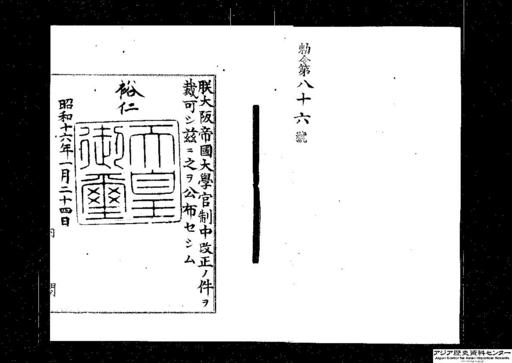 勅令第八十六號
朕大阪帝國大學官制中改正ノ件ヲ
裁可シ玆ニ之ヲ公布セシム
裕仁
天皇
御璽
昭和十六年一月二十四日
内閣
アジア歴史資料センター
Japan Center for Asian Historical Records